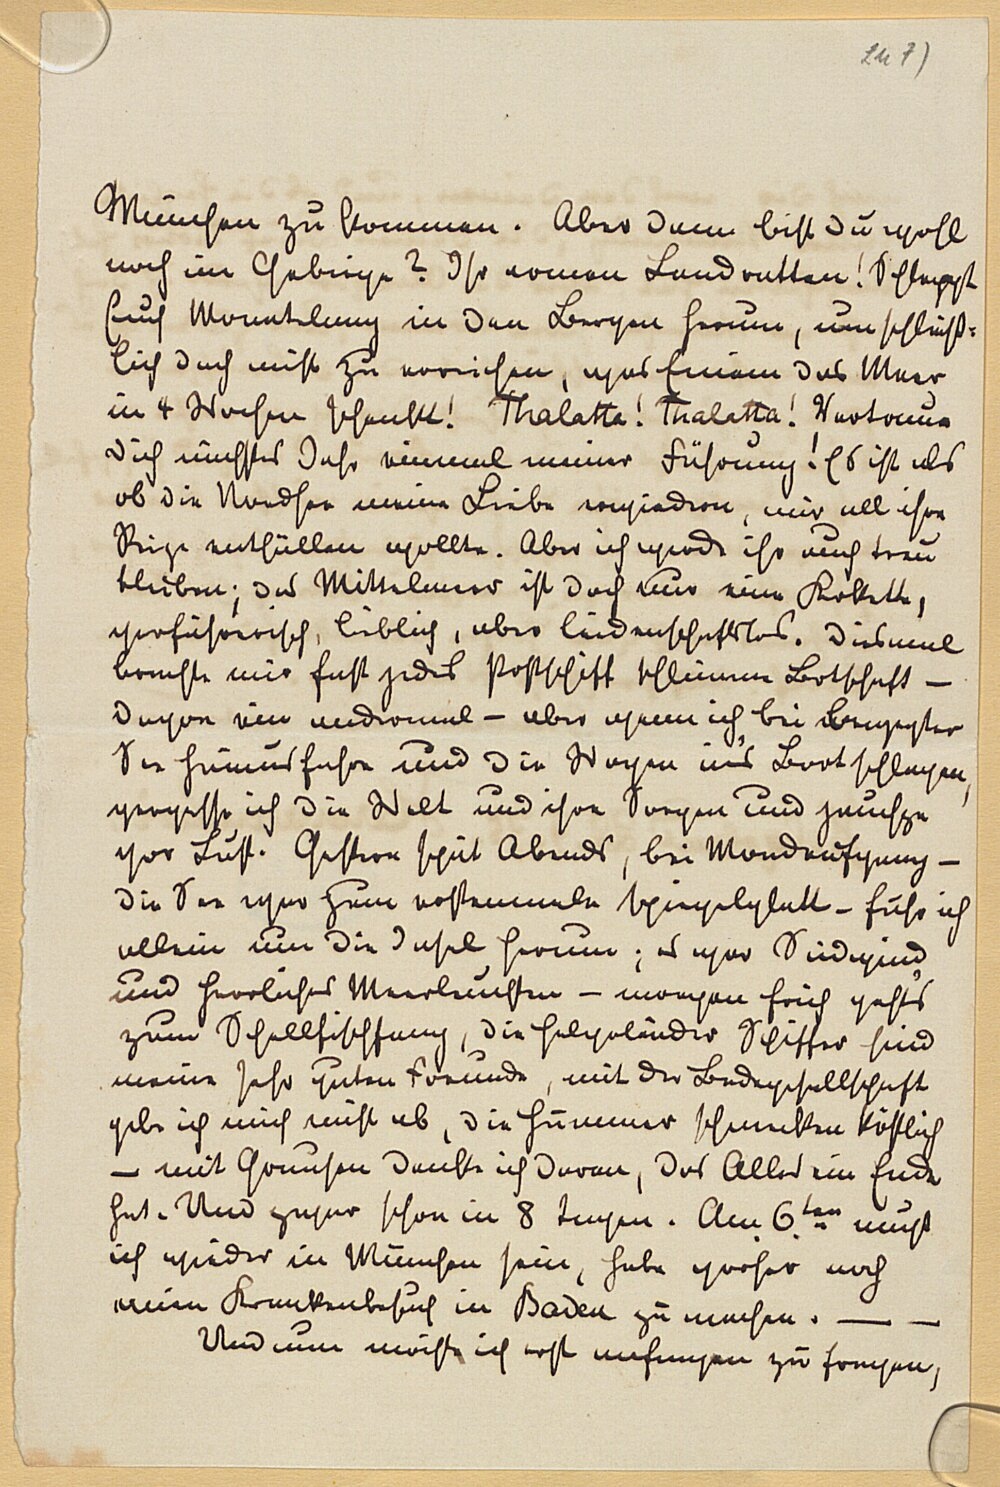 zu 7)
München zu kommen. Aber dann bist Du wohl
noch im Gebirge? Ihr armen Landratten! Schleppt
Euch Monatelang in den Bergen herum, um schließ-
lich doch nicht zu erreichen, was Einem das Meer
in 4 Wochen schenkt! Thalatta! Thalatta! Vertraue
Dich nächstes Jahr einmal meiner Führung! Es ist als
ob die Nordsee meine Liebe erwiedren, mir all ihre
Reize enthüllen wollte. Aber ich werde ihr auch treu
bleiben; das Mittelmeer ist doch nur eine Kokette,
verführerisch, lieblich, aber leidenschaftslos. Diesmal
brachte mir fast jedes Postschiff schlimme Botschaft –
davon ein andermal – aber wenn ich bei bewegter
See hinausfahre und die Wogen in's Boot schlagen,
vergesse ich die Welt und ihre Sorgen und jauchze
vor Lust. Gestern spät Abends, bei Mondaufgang –
die See war zum erstenmale spiegelglatt – fuhr ich
allein um die Insel herum; es war Südwind
und herrliches Meerleuchten – morgen früh geht's
zum Schellfischfang, die Helgoländer Schiffer sind
meine sehr guten Freunde, mit der Badegesellschaft
gebe ich mich nicht ab, die Hummer schmecken köstlich
– mit Grausen denke ich daran, das Alles ein Ende
hat. Und zwar schon in 8 Tagen. Am 6ten muß
ich wieder in München sein, habe vorher noch
einen Krankenbesuch in Baden zu machen. — —
Und nun möchte ich erst anfangen zu fragen,